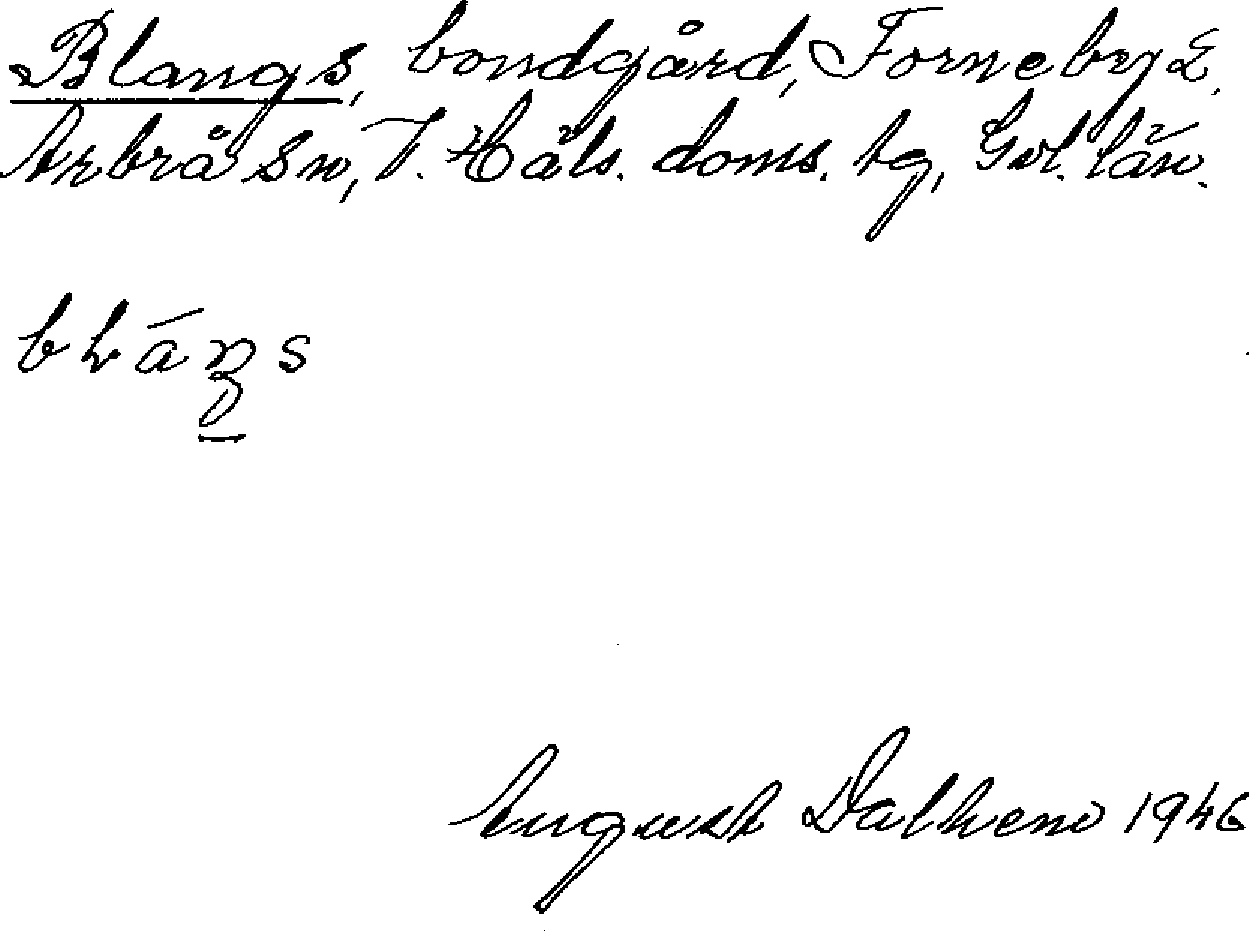 Blangs, bondgård, Forneby 2.
Arbrå sn, V. Häls. doms. tg, Gvl. län.
August Dalhem 1946